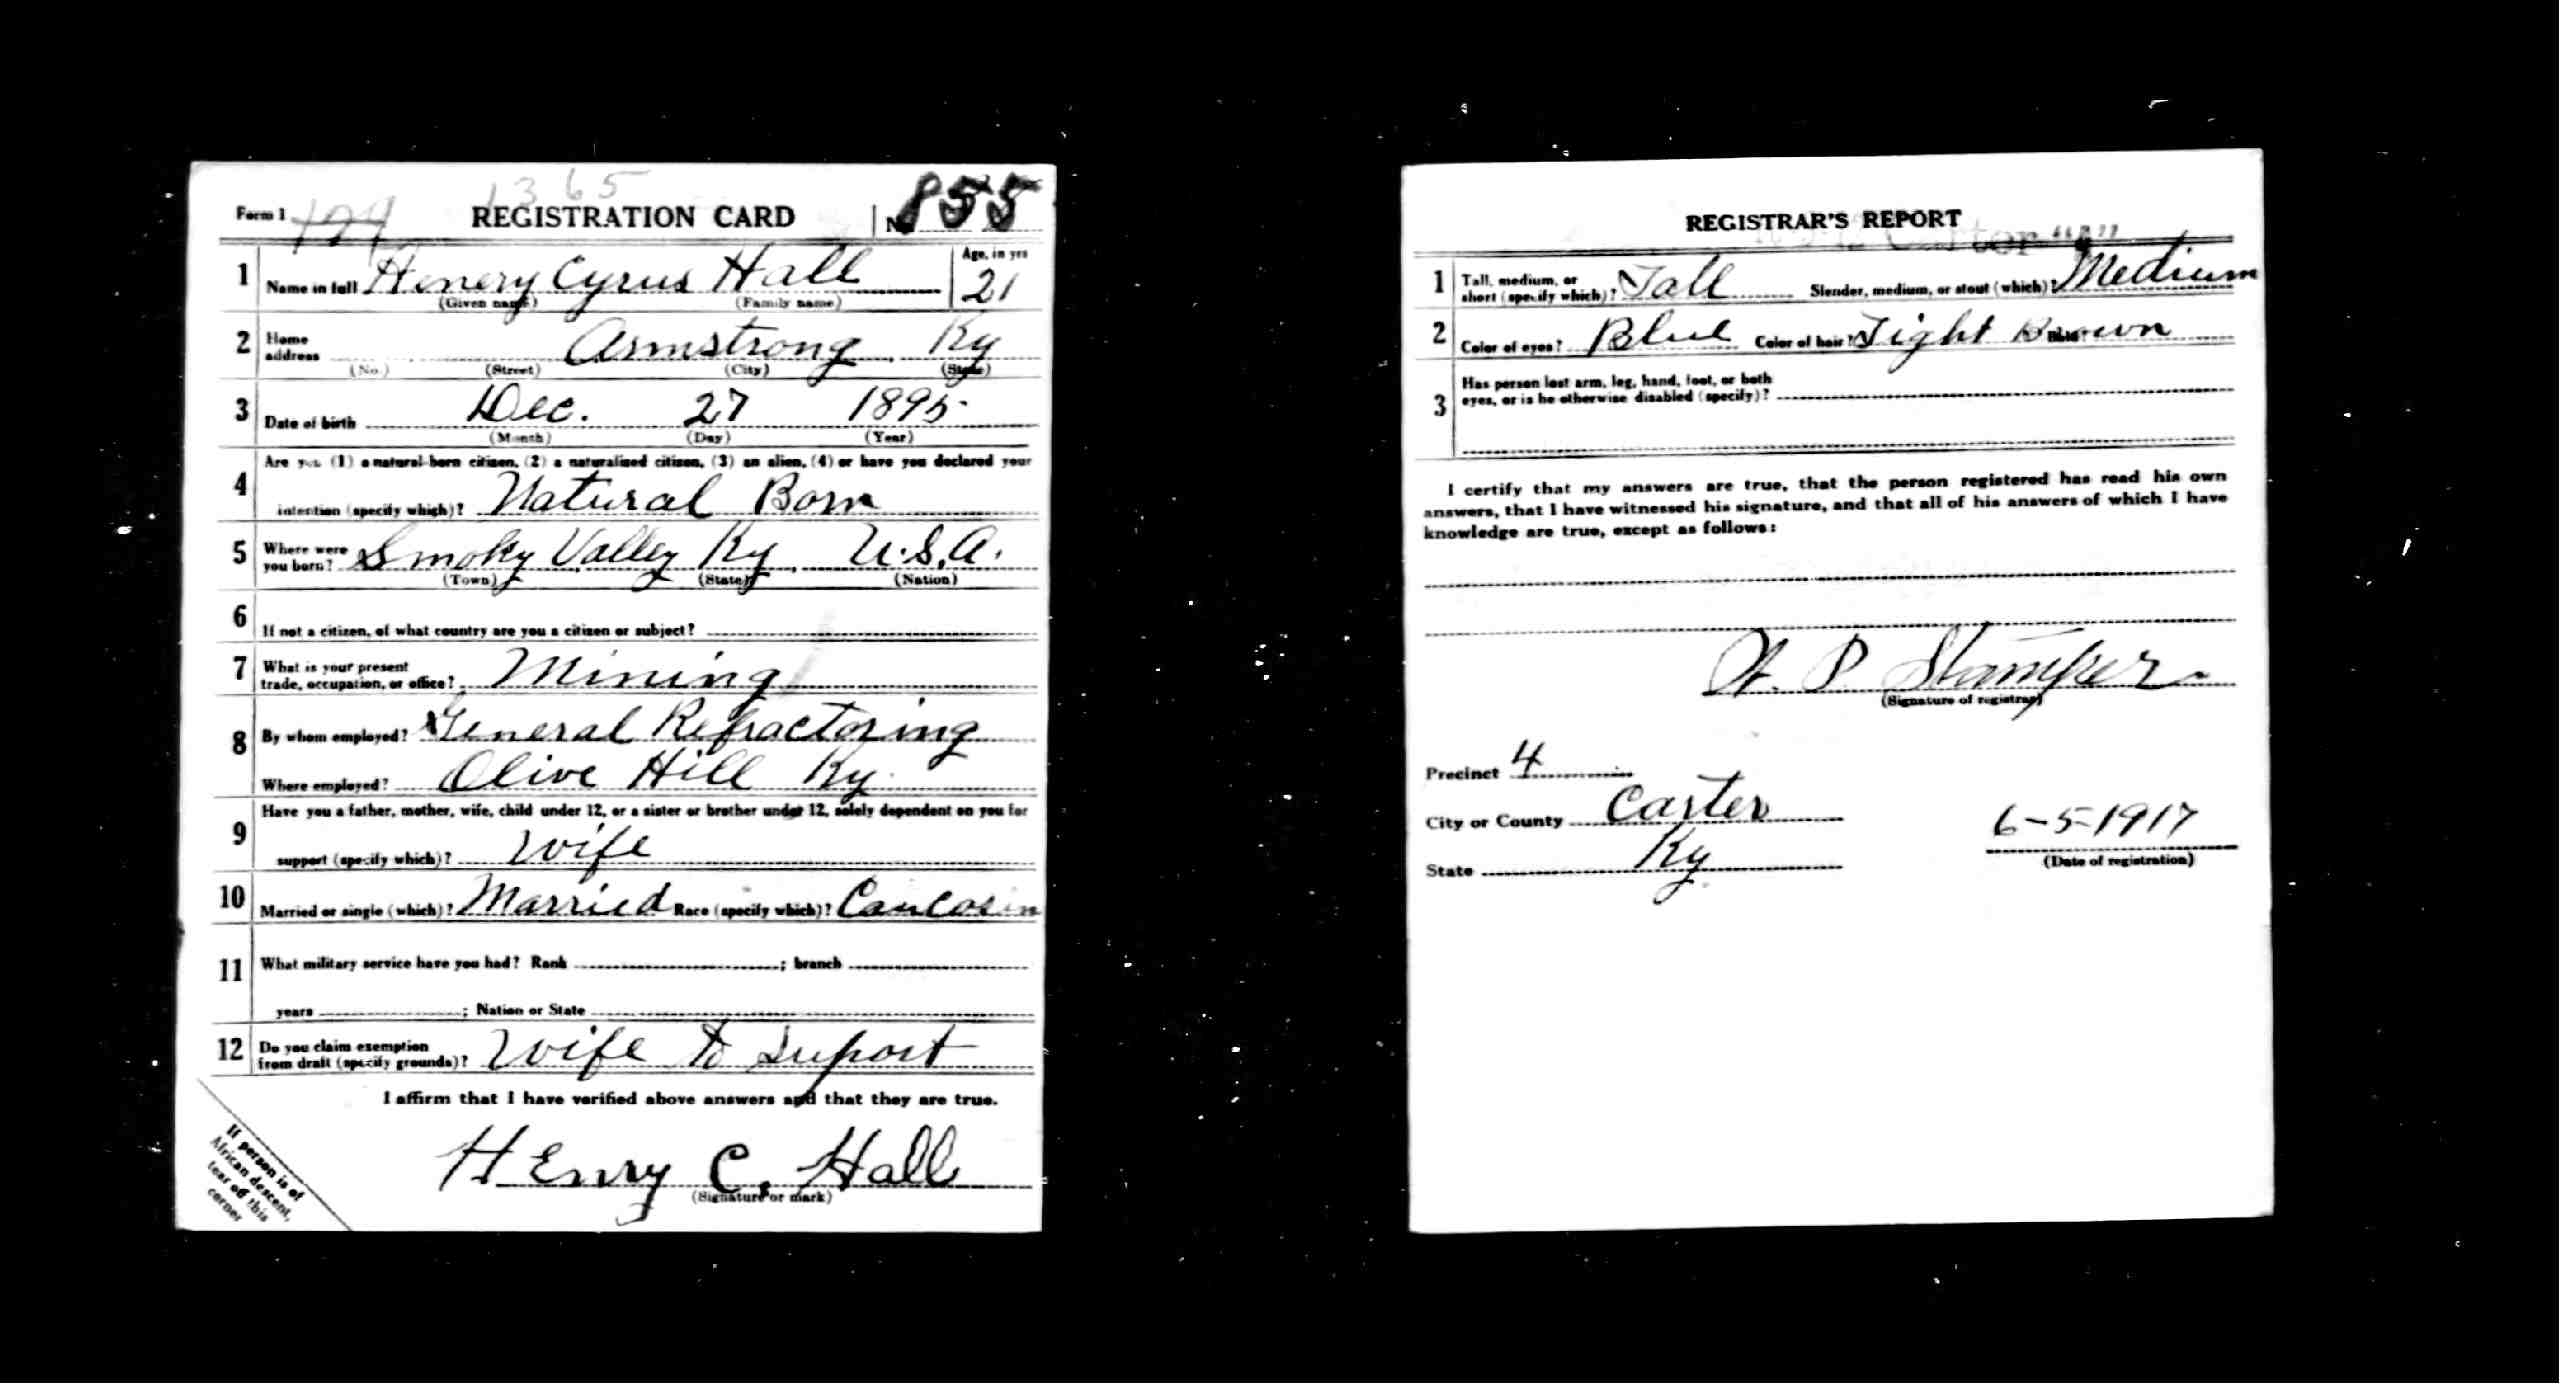 1365
Form 1 REGISTRATION CARD No. 855
1 Name in full Henery Cyrus Hall Age, in yrs 21
(Given name) (Family name)
2 Home address Armstrong Ky
(No.) (Street) (City) (State)
3 Date of birth Dec. 27 1895
(Month) (Day) (Year)
4 Are you (1) a natural-born citizen, (2) a naturalized citizen, (3) an alien, (4) or have you declared your
intention (specify which)? Natural Born
5 Where were you born? Smoky Valley Ky U.S.A.
(Town) (State) (Nation)
6 If not a citizen, of what country are you a citizen or subject?
7 What is your present
trade, occupation, or office? Mining
8 By whom employed? General Refractoring
Where employed? Olive Hill Ky.
9 Have you a father, mother, wife, child under 12, or a sister or brother under 12, solely dependent on you for
support (specify which)? Wife
10 Married or single (which)? Married Race (specify which)? Caucasin
11 What military service have you had? Rank ; branch
years ; Nation or State
12 Do you claim exemption
from draft (specify grounds)? Wife to Suport
I affirm that I have verified above answers and that they are true.
Henry C. Hall
(Signature or mark)
If person is of
African descent,
tear off this
corner
REGISTRAR'S REPORT
1 Tall, medium, or
short (specify which)? Tall Slender, medium, or stout (which)? Medium
2 Color of eyes? Blue Color of hair? Light Brown Bald?
3 Has person lost arm, leg, hand, foot, or both
eyes, or is he otherwise disabled (specify)?
I certify that my answers are true, that the person registered has read his own
answers, that I have witnessed his signature, and that all of his answers of which I have
knowledge are true, except as follows:
W. P Stamper
(Signature of registrar)
Precinct 4
City or County Carter
6-5-1917
State Ky
(Date of registration)